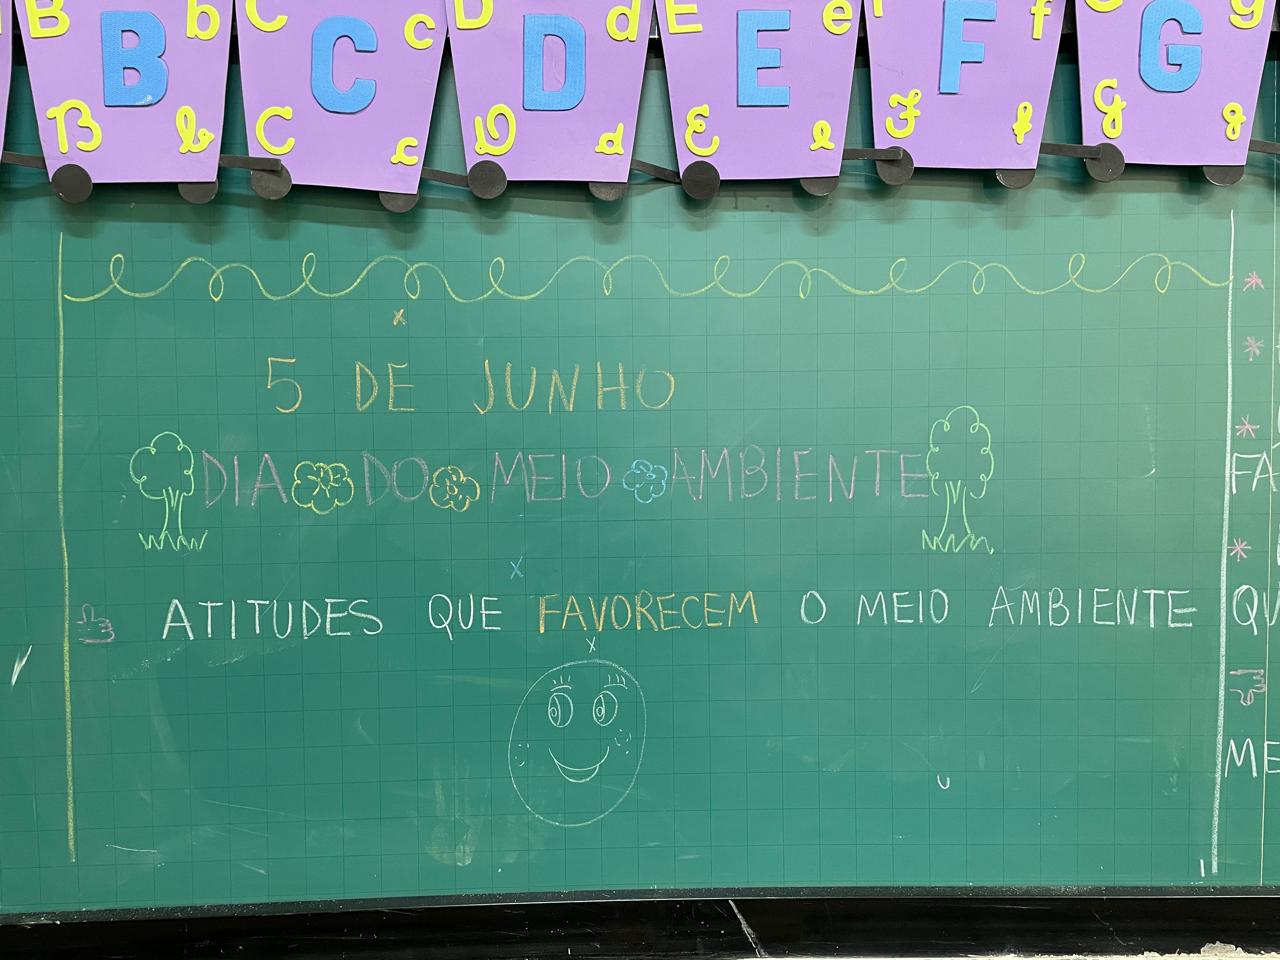 B b C c D d E e F f G g
B C D E F G
B b C c D d E e F f G g
5 DE JUNHO
DIA DO MEIO AMBIENTE
ATITUDES QUE FAVORECEM O MEIO AMBIENTE
FA
QU
ME